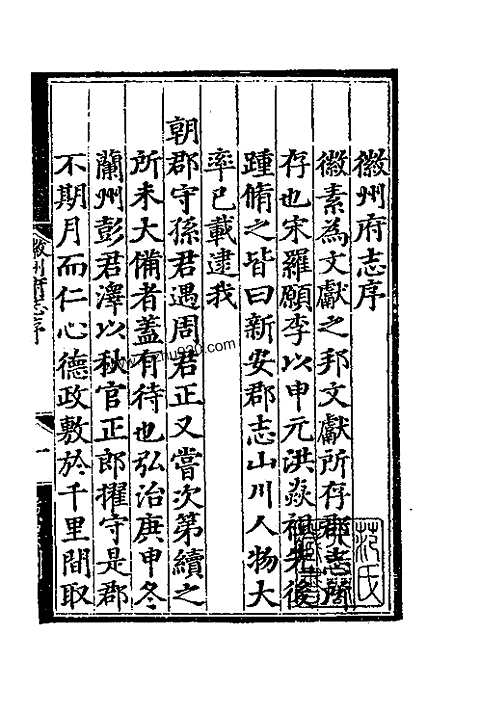 徽州府志序
徽素為文獻之邦文獻所存郡志所
存也宋羅願李以申元洪焱祖先後
踵脩之皆曰新安郡志山川人物大
率已載逮我
朝郡守孫君遇周君正又嘗次第續之
所未大備者蓋有待也弘治庚申冬
蘭州彭君澤以秋官正郎擢守是郡
不期月而仁心德政敷於千里間取
徽州府志序
一
范氏